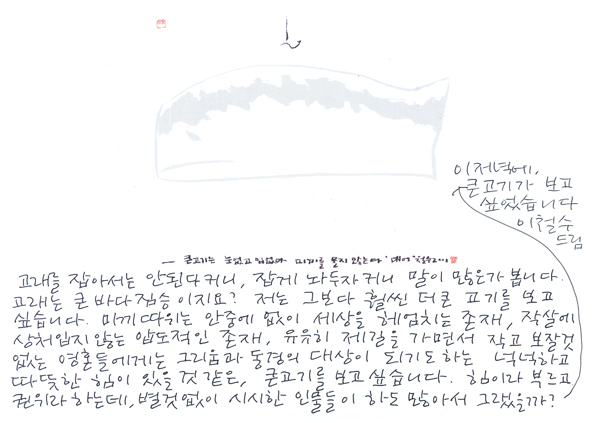 이 저녁에,
큰고기가 보고
싶었습니다
이철수
드림
— 큰고기는 눈없고 입없다 미끼를 물지 않는다
고래를 잡아서는 안된다커니, 잡게 놔두자커니 말이 많은가 봅니다.
고래는 큰 바다짐승이지요? 저는 그보다 훨씬 더큰 고기를 보고
싶습니다. 미끼따위는 안중에 없이 세상을 헤엄치는 존재, 작살에
상처입지않는 압도적인 존재, 유유히 제길을 가면서 작고 보잘것
없는 영혼들에게는 그리움과 동경의 대상이 되기도하는 넉넉하고
따뜻한 힘이 있을것 같은, 큰고기를 보고싶습니다. 힘이라 부르고
권위라하는데, 별것없이 시시한 인물들이 하도 많아서 그랬을까?